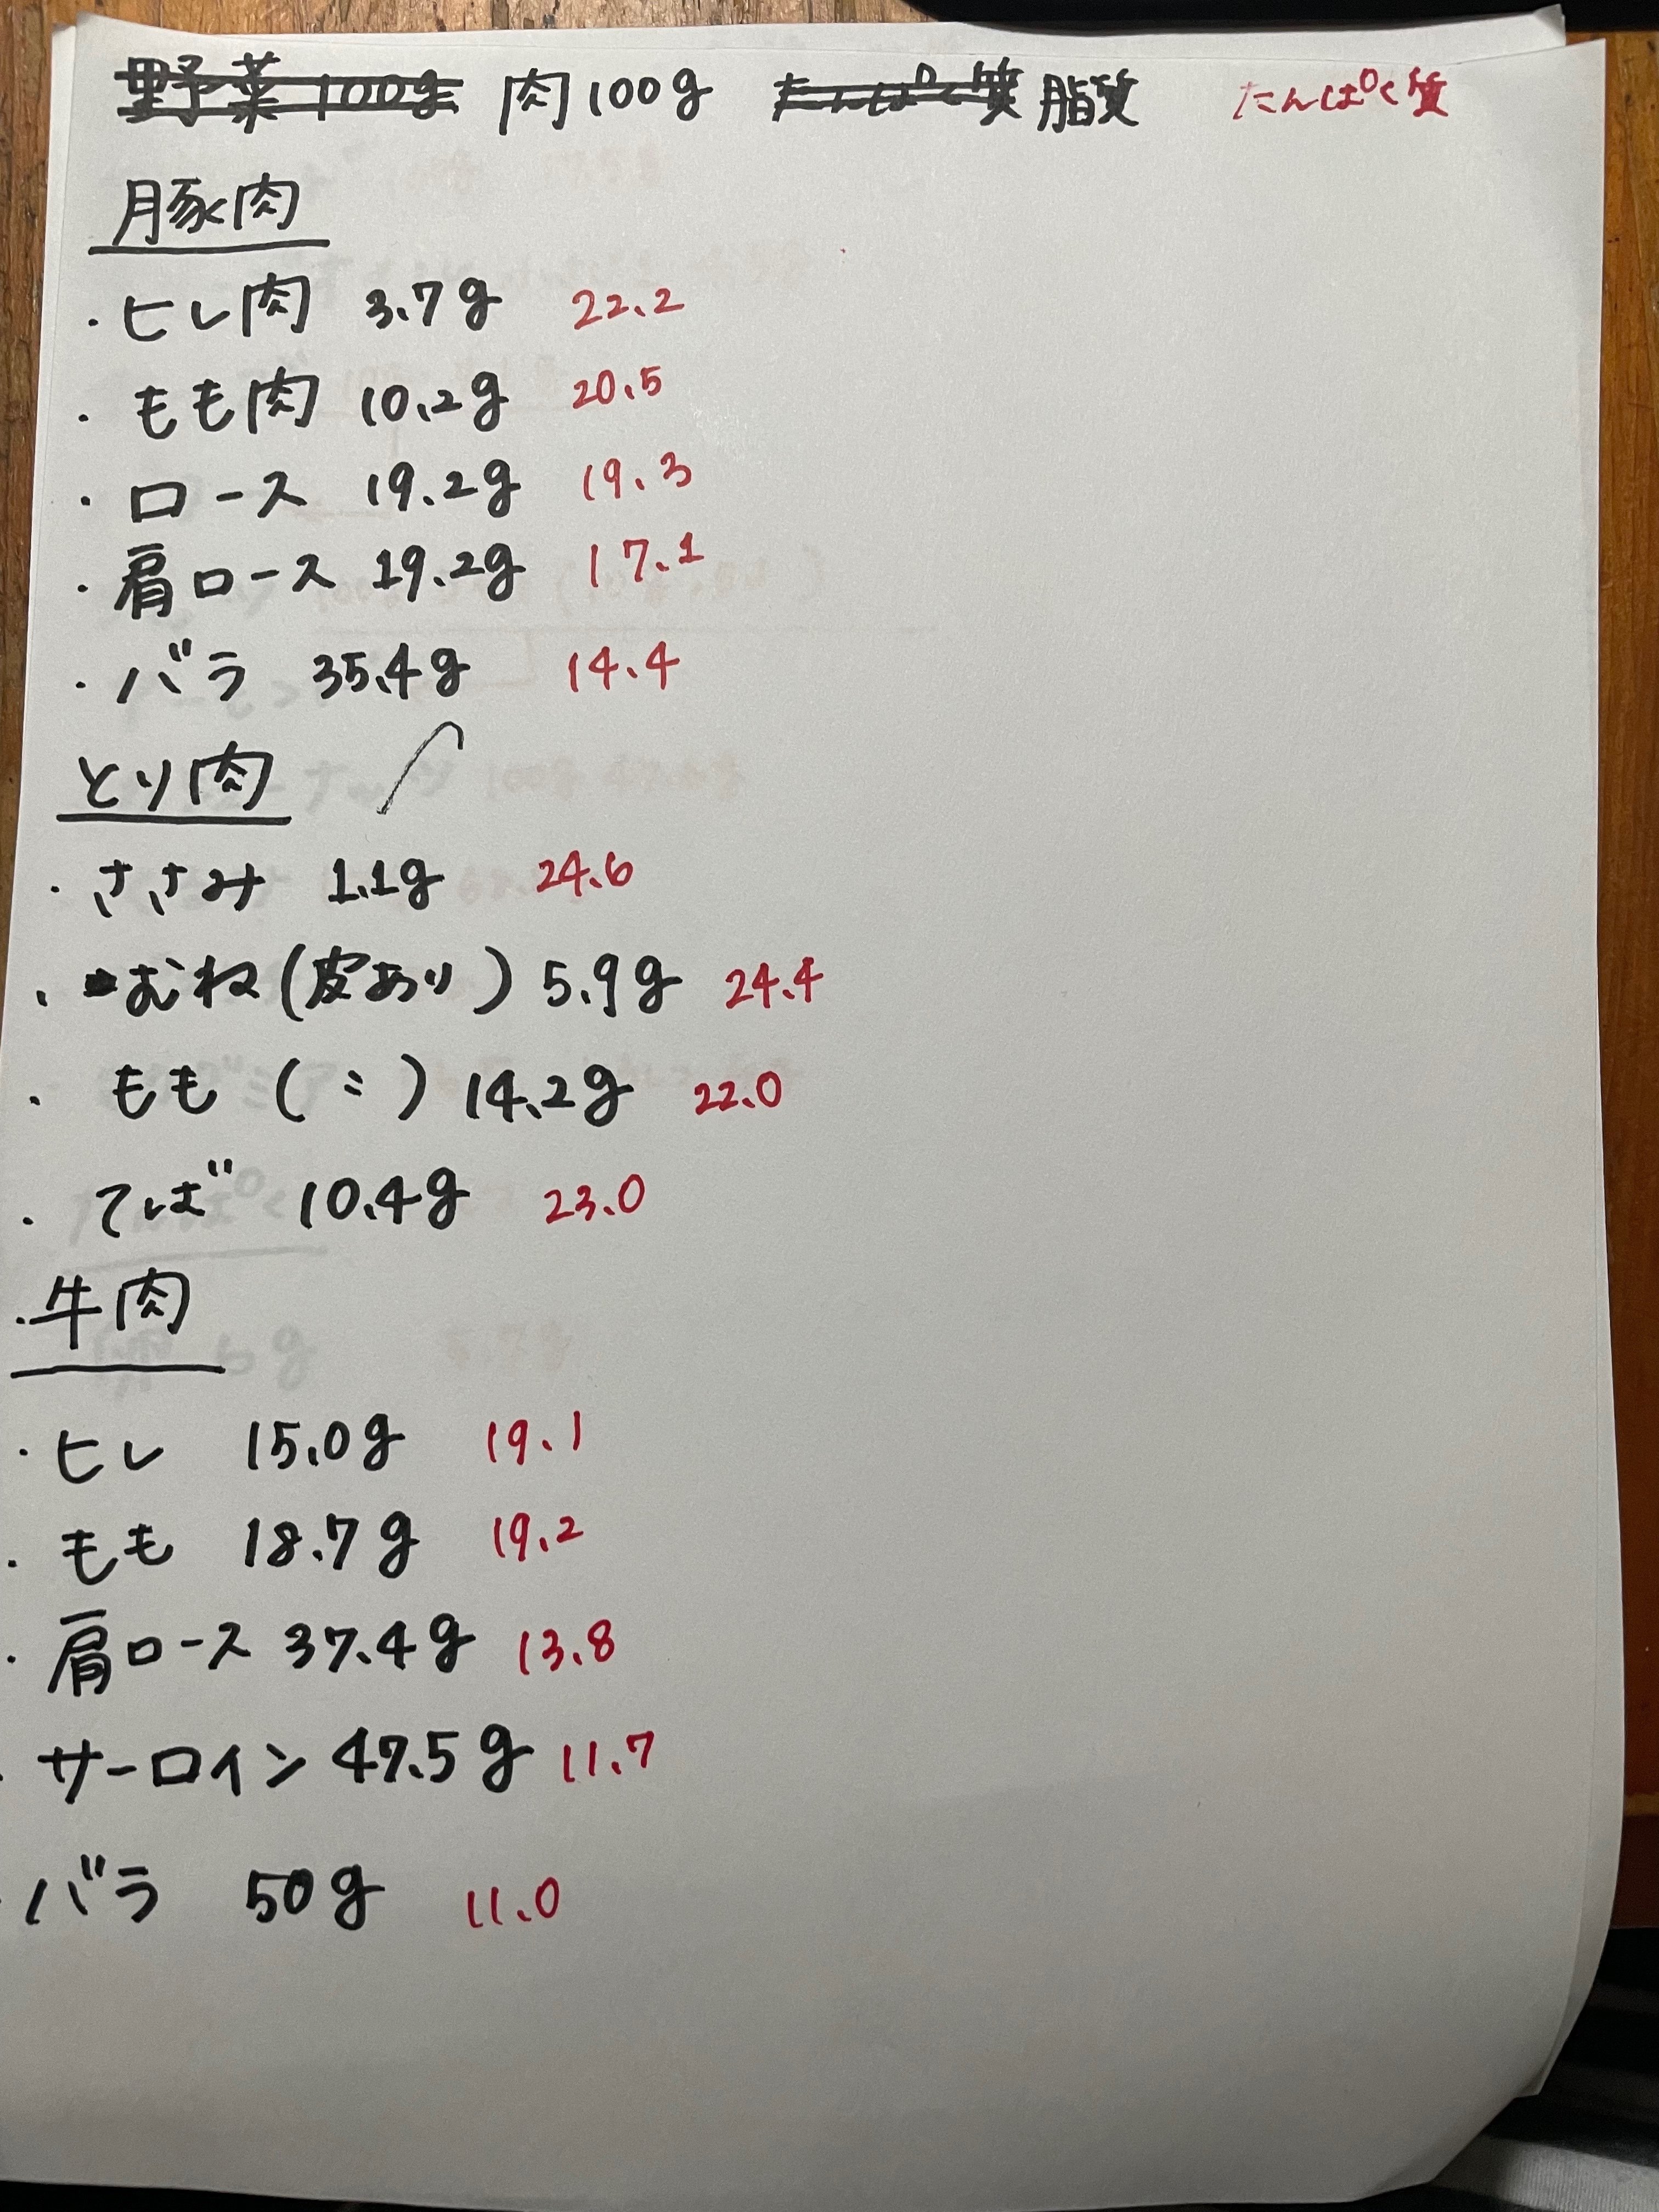 野菜100g 肉100g たんぱく質 脂質 たんぱく質
豚肉
・ヒレ肉 3.7g 22.2
・もも肉 10.2g 20.5
・ロース 19.2g 19.3
・肩ロース 19.2g 17.1
・バラ 35.4g 14.4
とり肉
・ささみ 1.1g 24.6
・むね(皮あり) 5.9g 24.4
・もも(〃) 14.2g 22.0
・てば 10.4g 23.0
・牛肉
・ヒレ 15.0g 19.1
・もも 18.7g 19.2
・肩ロース 37.4g 13.8
・サーロイン 47.5g 11.7
・バラ 50g 11.0